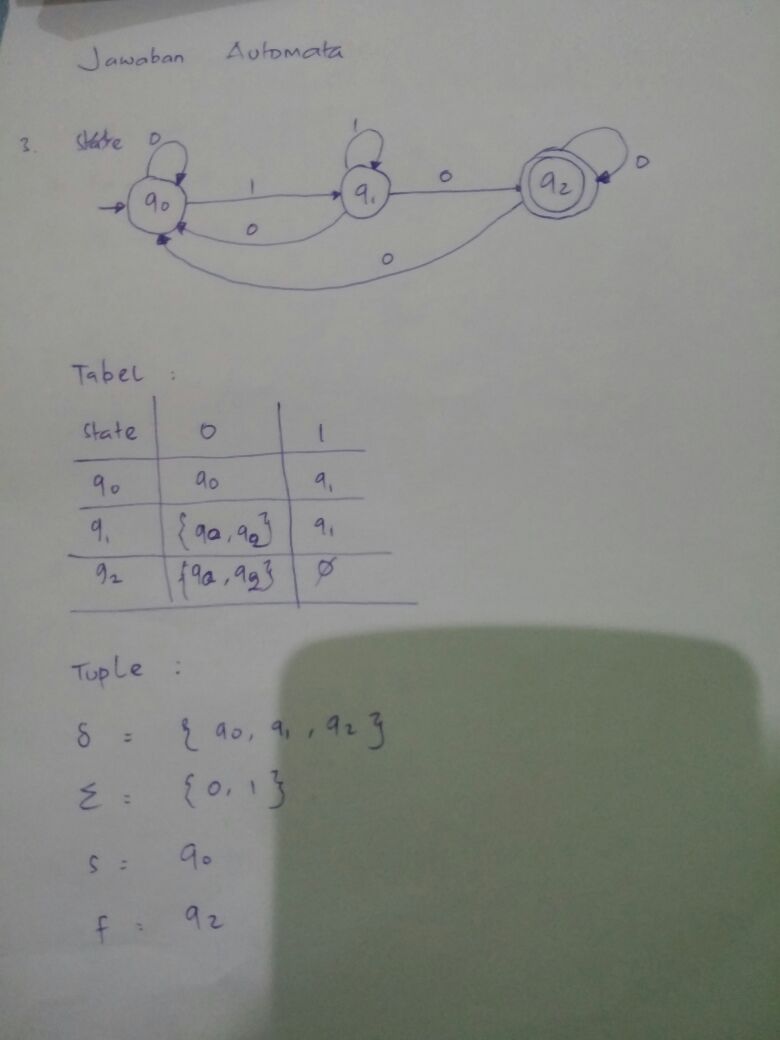 Jawaban Automata
3. State
0 1 0
q0 1 q1 0 q2
0
0
Tabel :
State 0 1
q0 q0 q1
q1 {q0, q2} q1
q2 {q0, q2} ∅
Tuple :
δ = { q0, q1, q2 }
Σ = {0, 1}
S = q0
f = q2